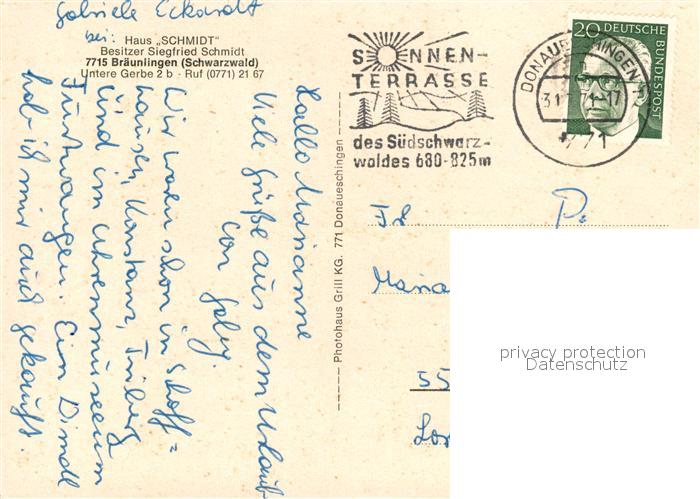 Gabriele Eckardt
bei: Haus „SCHMIDT"
Besitzer Siegfried Schmidt
7715 Bräunlingen (Schwarzwald)
Untere Gerbe 2 b · Ruf (0771) 21 67
Hallo Marianne
Viele Grüße aus dem Urlaub
von Gaby.
Wir waren schon in Schaff=
hausen, Konstanz, Triberg
und im Uhrenmuseum
Furtwangen. Ein Dirndl
hab ich mir auch gekauft.
Photohaus Grill KG. 771 Donaueschingen
SONNEN-
TERRASSE
des Südschwarz-
waldes 680-825m
DONAUESCHINGEN 1
771
20 DEUTSCHE
BUNDESPOST
Frl.
P.
Maria
55
privacy protection
Datenschutz